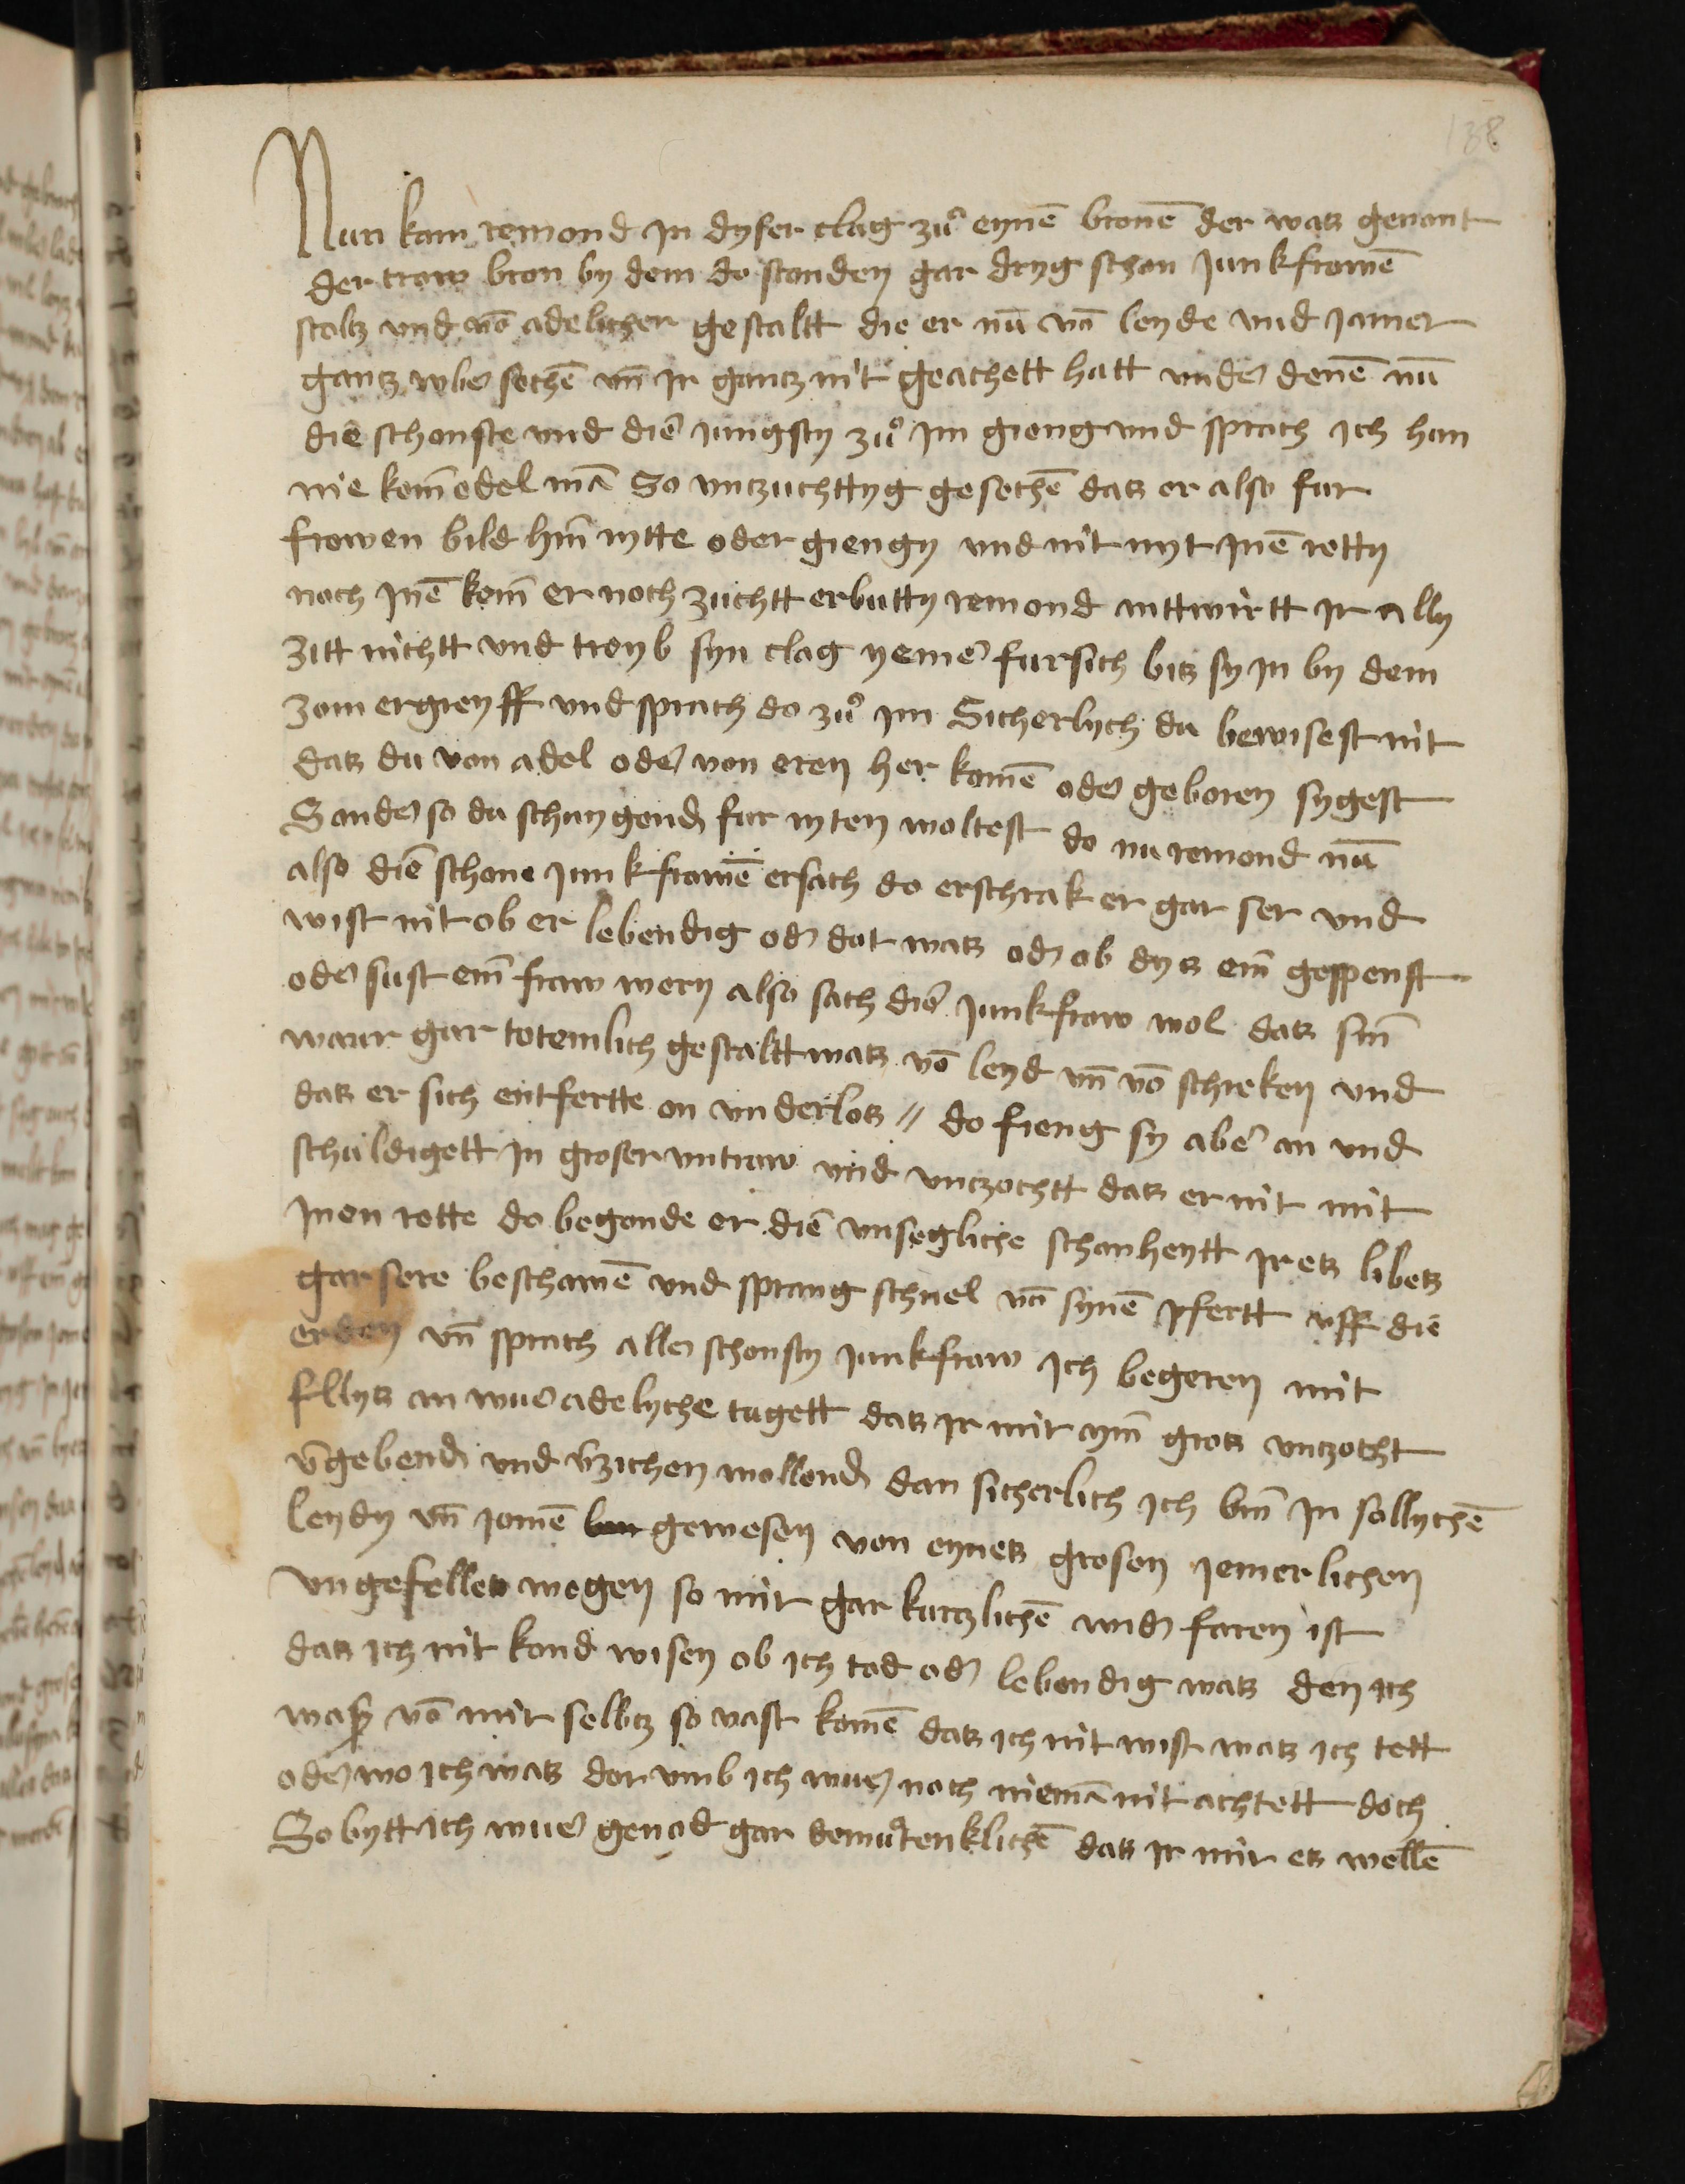 138
Nun kam remond jn dyser clag zuͦ eynē bronē der waß genant
der trow bron by dem do stonden gar dryg schon junkfrowē
stoltz vnd vō adelicher gestaltt die er nū vō leyde vnd jamer
gantz vbeͬ sechē vn̄ jr gantz nit geachett hatt vndeͬ denē nū
die schonste vnd die jungsty zuͦ jm gieng vnd sprach jch han
nie kein̄ edel mā So vntzuchttyg gesechē daß er also fur
frowen bild hin̄ rytte oder giengy vnd nit myt jnē retty
noch jnē kein̄ er noch zuchtt erbutty remond anttwirtt jr ally
zitt nichtt vnd treyb syn clag yemeͬ fur sich biß sy jn by dem
zom ergreyff vnd sprach do zuͦ jm Sicherlych du bewisest nit
daß du von adel odeͬ von eren her komē odeͬ geboren sygest
Sondeͬ so du schwygend fur ryten woltest do nu remond nū
also die schone junkfrowē ersach do erschrak er gar ser vnd
wist nit ob er lebendig odͬ dot waß odͬ ob dyß ein̄ gespenst
odeͬ sust ein̄ fraw wery also sach die junkfrow wol daß sin̄
varw gar totemlich gestaltt waß vō leyd vn̄ vō schreken vnd
daß er sich entferttte on vnderloß // do fieng sy abeͬ an vnd
schuldigett jn groser vntraw vnd vntzochtt daß er nit mit
jnen rette do begonde er die vnsegliche schonheytt jreß libeß
gar sere beschowē vnd sprang schnel vō synē pfertt vff die
erden vn̄ sprach alleͬ schonsty junkfraw jch begeren mit
fllyß an vweͬ adelyche tugett daß jr mir myn̄ groß vntzocht
v̄gebend vnd v̄zichen wollend dan sicherlich jch bin̄ jn sollychē
leydy vn̄ jomē gewesen von eyneß grosen jemerlichen
vngefelleß wegen so mir gar kurtzlichē widͬ faren ist
daß jch nit kond wisen ob jch tod odͬ lebendig waß den jch
waß vō mir selbtz so vast komē daß jch nit wist waß jch tett
odeͬ wo jch waß dor vmb jch vweͬ noch niemā nit achtett doch
So bytt jch vweͬ genod gar demuͦtenklichē daß jr mir eß wellē